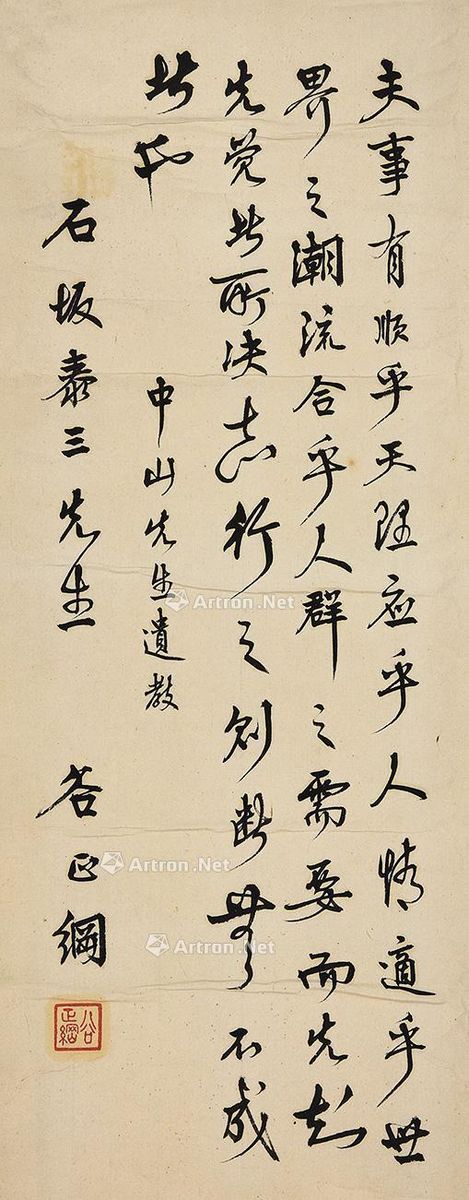 夫事有順乎天理应乎人情適乎世
界之潮流合乎人群之需要而先知
先觉者所决志行之則断無不成
者也
中山先生遺教
石坂泰三先生 谷正綱
谷正綱
Artron.Net
Artron.Net
Artron.Net